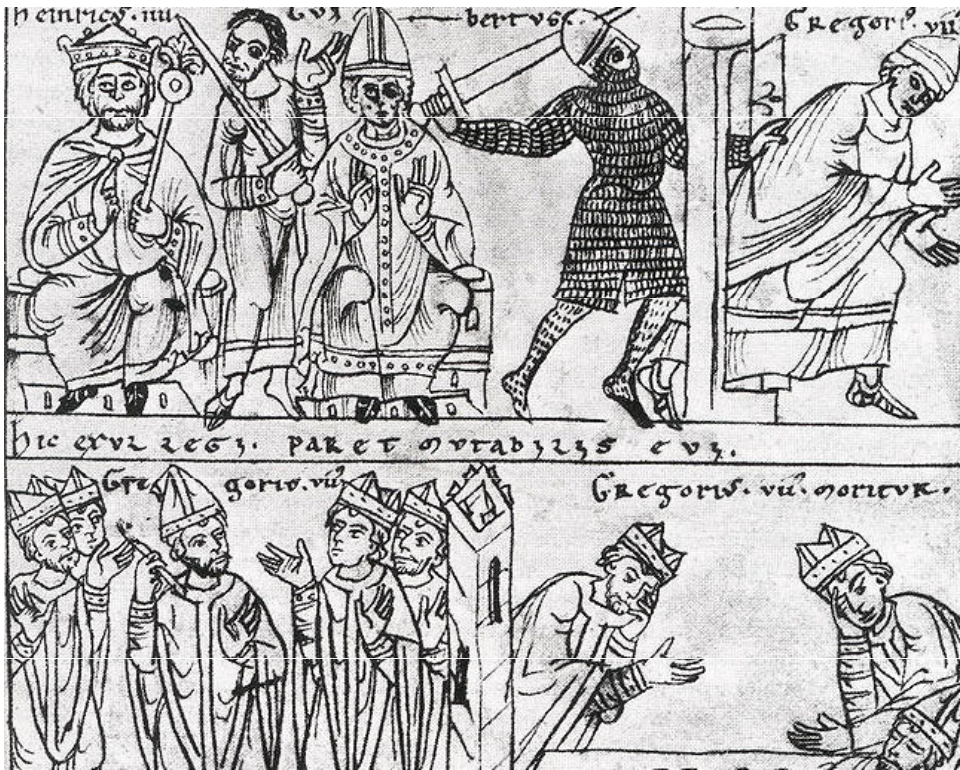 heinricꝰ·iiii Gui bertus Gregoriꝰ·vii
hic exvl regi· paret mvtabilis evi.
Gregoriꝰ·vii Gregoriꝰ·vii moritvr·